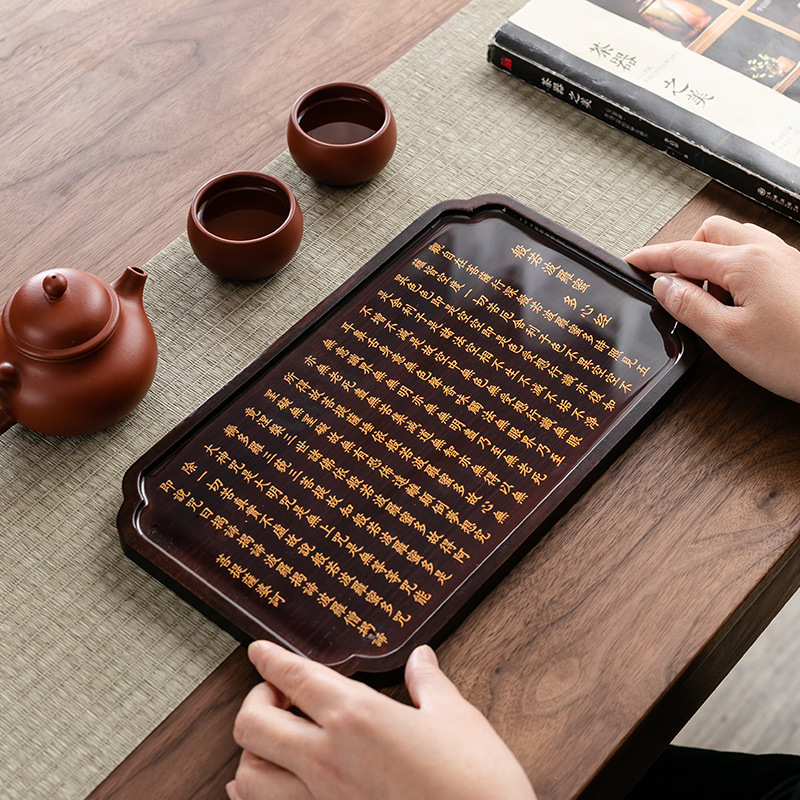 般若波羅蜜多心经
觀自在菩薩行深般若波羅蜜多時照見五
蘊皆空度一切苦厄舍利子色不異空空不
異色色即是空空即是色受想行識亦復如
是舍利子是諸法空相不生不滅不垢不淨
不增不減是故空中無色無受想行識無眼
耳鼻舌身意無色聲香味觸法無眼界乃至
無意識界無無明亦無無明盡乃至無老死
亦無老死盡無苦集滅道無智亦無得以無
所得故菩提薩埵依般若波羅蜜多故心無
罣礙無罣礙故無有恐怖遠離顛倒夢想究
竟涅槃三世諸佛依般若波羅蜜多故得阿
耨多羅三藐三菩提故知般若波羅蜜多是
大神咒是大明咒是無上咒是無等等咒能
除一切苦真實不虛故說般若波羅蜜多咒
即說咒曰揭諦揭諦波羅揭諦波羅僧揭諦
菩提薩婆訶
茶器之美
茶器之美